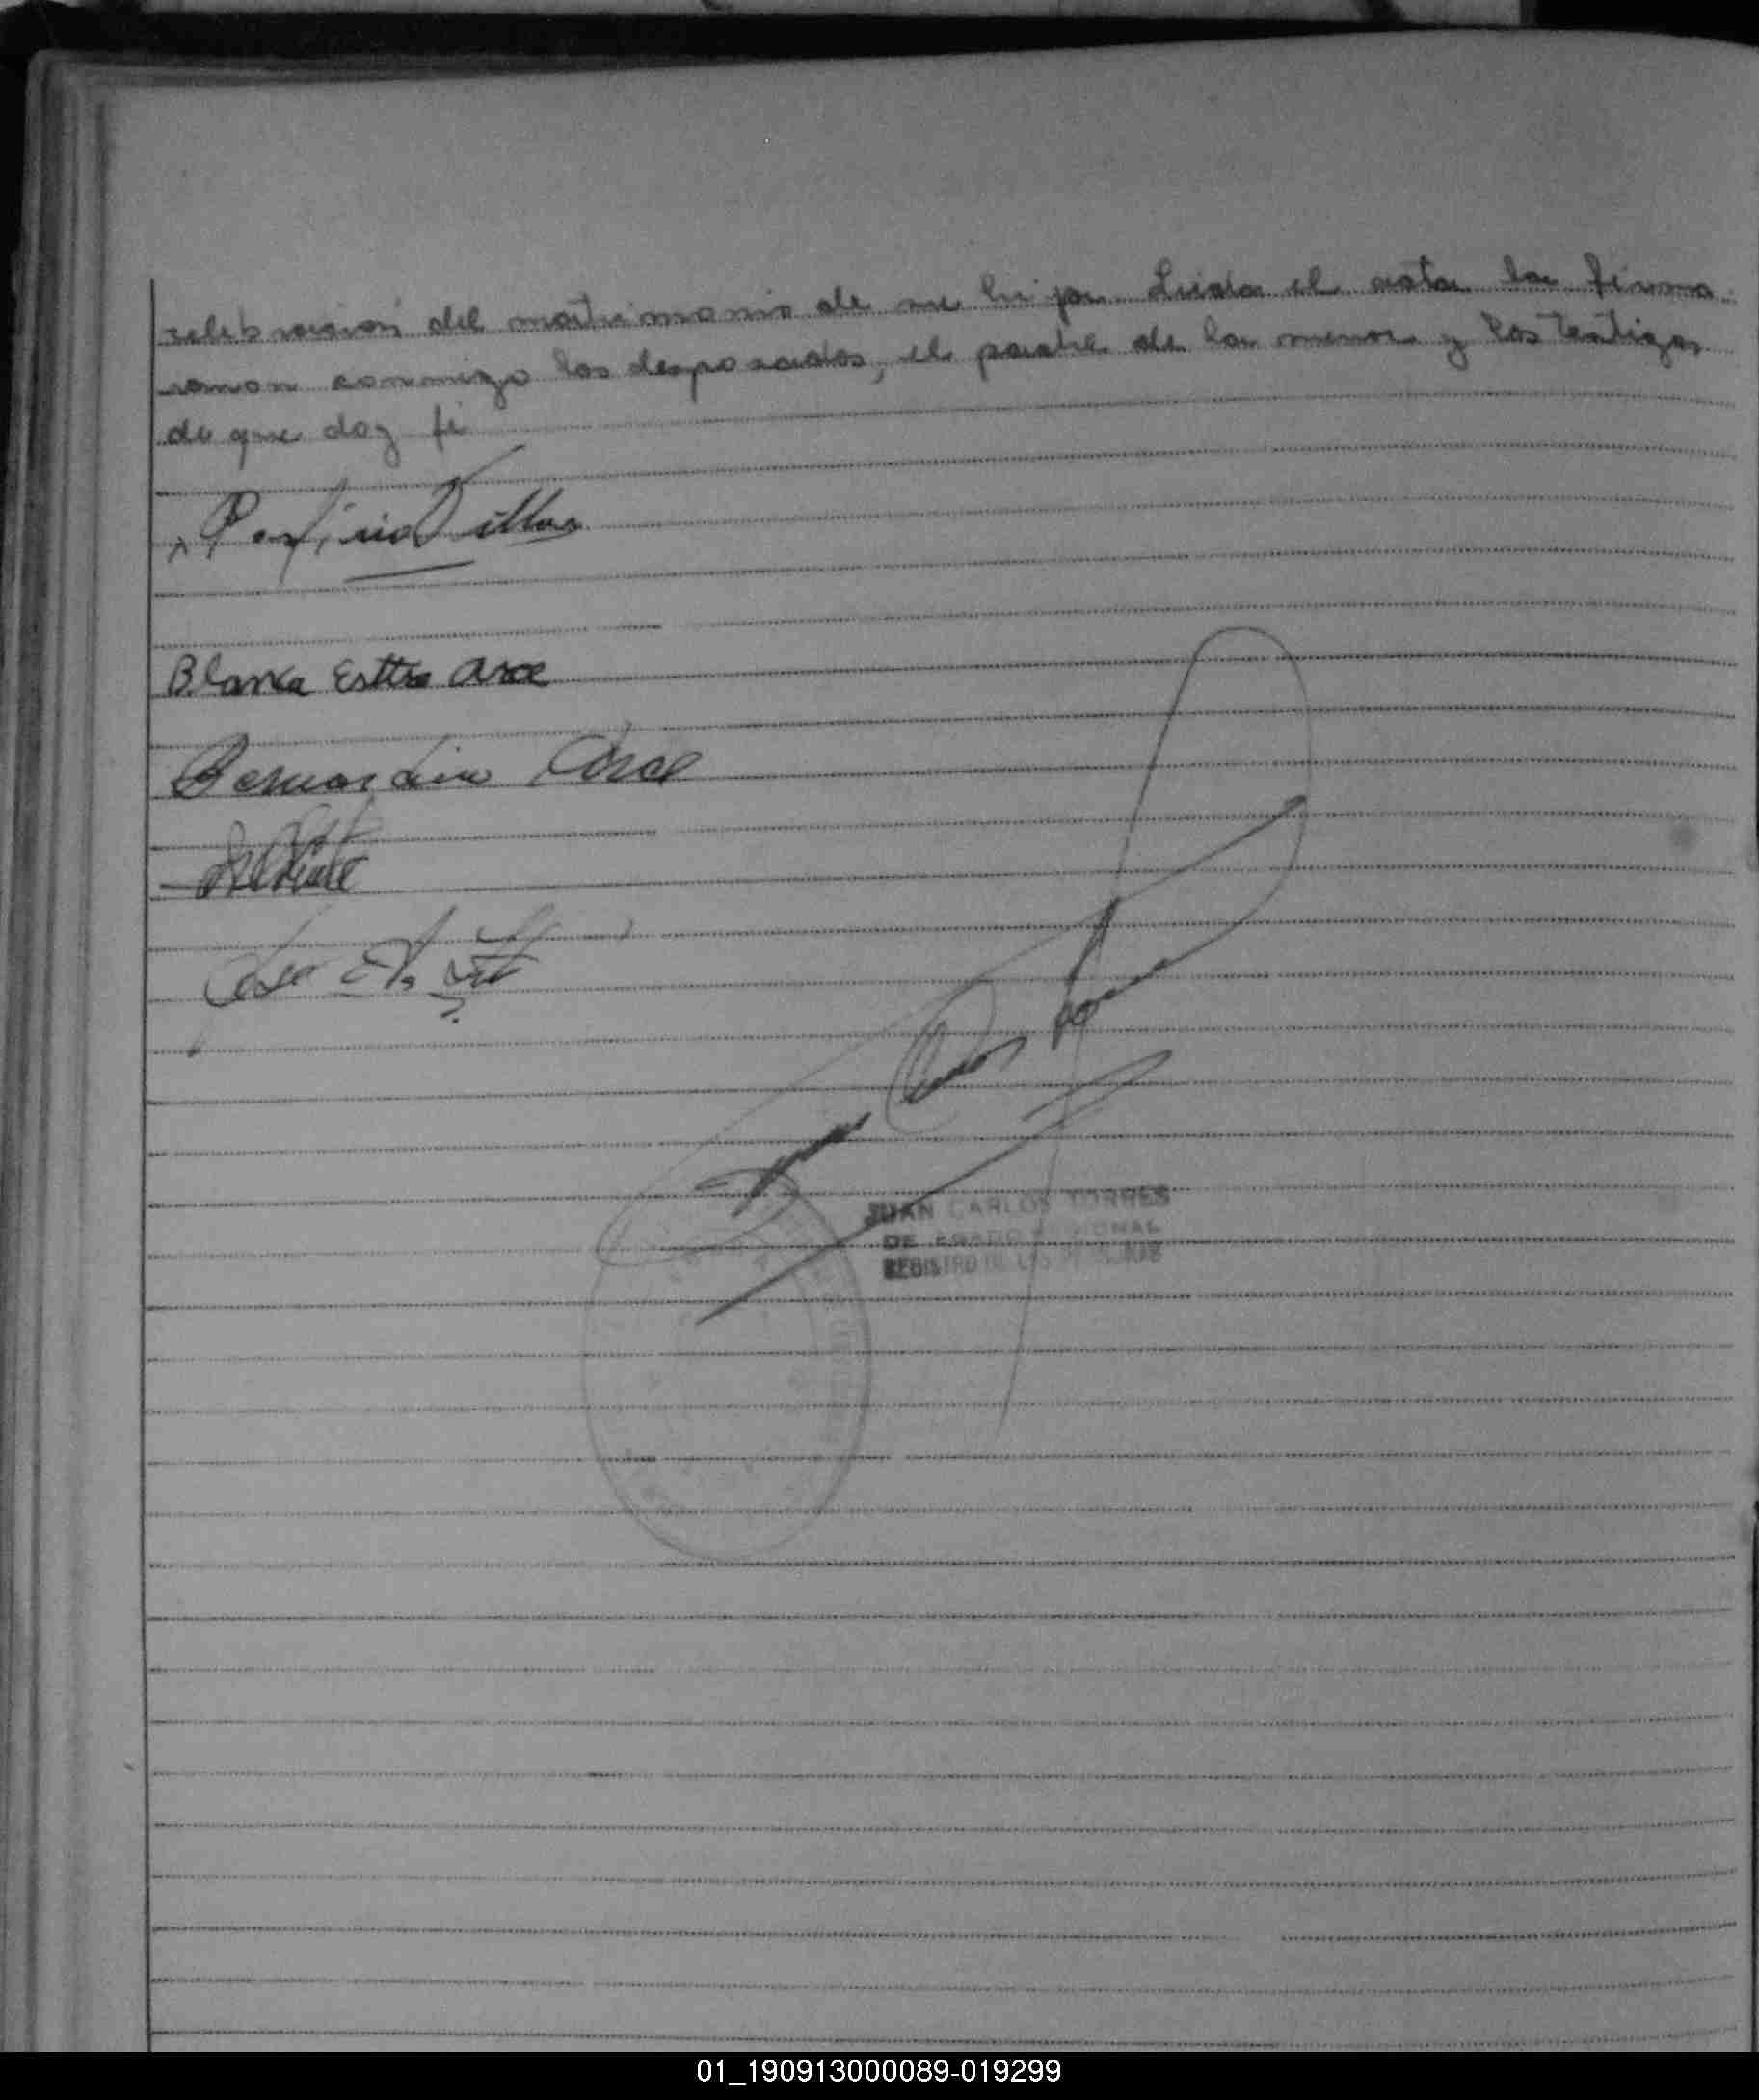 celebracion del matrimonio de su hija. Leida el acta la firma-
ron conmigo los desposados, el padre de la menor y los testigos
de que doy fe
Porfirio Villar
Blanca Ester Arce
Bernardino Arce
Juan Carlos Torres
JUAN CARLOS TORRES
DELEGADO REGIONAL
REGISTRO DE LAS PERSONAS
01_190913000089-019299